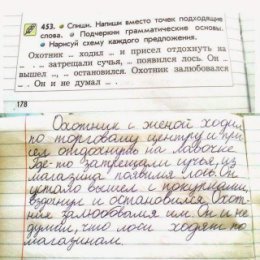 453. • Спиши. Напиши вместо точек подходящие
слова. • Подчеркни грамматические основы.
• Нарисуй схему каждого предложения.
Охотник ... ходил ... и присел отдохнуть на
... . ... затрещали сучья, ... появился лось. Он
вышел ..., ... остановился. Охотник залюбовался
... . Он и не думал ... .
178
Охотник с женой ходил
по торговому центру и при-
сел отдохнуть на лавочке.
Где-то затрещали сучья, из
магазина появился лось. Он
устало вышел с покупками,
вздохнул и остановился. Охот-
ник залюбовался им. Он и не
думал, что лоси ходят по
магазинам.